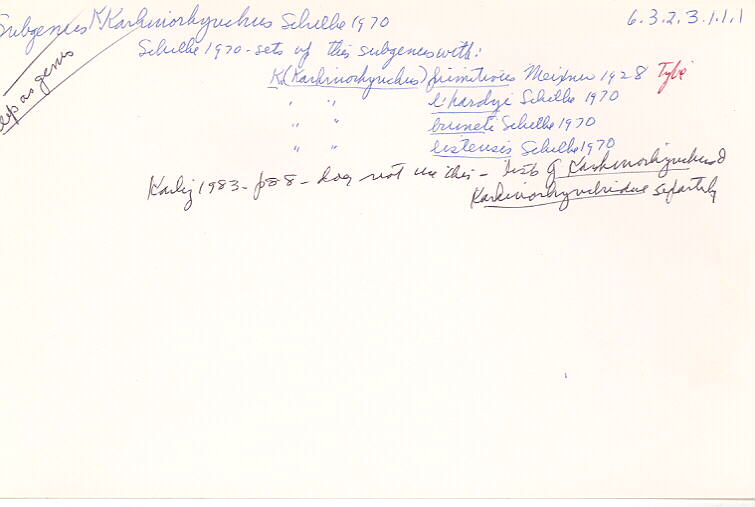 Subgenus Karkinorhynchus Schilke 1970
6.3.2.3.1.1.1
as genus
Schilke 1970 - sets up this subgenus with:
K. (Karkinorhynchus) primitivus Meixner 1928 Type
" " l'hardyi Schilke 1970
" " bruneti Schilke 1970
" " listensis Schilke 1970
Karling 1983 - p88 - does not use this - lists
Karkinorhynchus &
Karkinorhynchidae separately